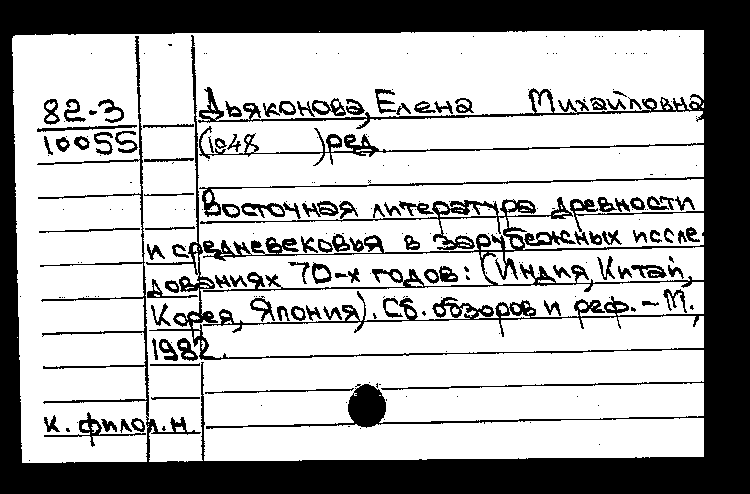 82-3 Дьяконова, Елена Михайловна
10055 (1048 ) ред.
Восточная литература древности
и средневековья в зарубежных иссле-
дованиях 70-х годов: (Индия, Китай,
Корея, Япония). Сб. обзоров и реф. - М.,
1982.
к. филол. н.